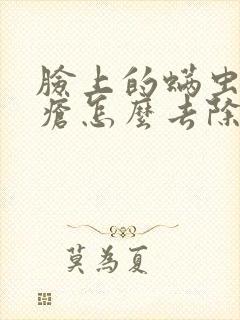 臉上的蟎虫
瘡怎麼去除
莫為夏